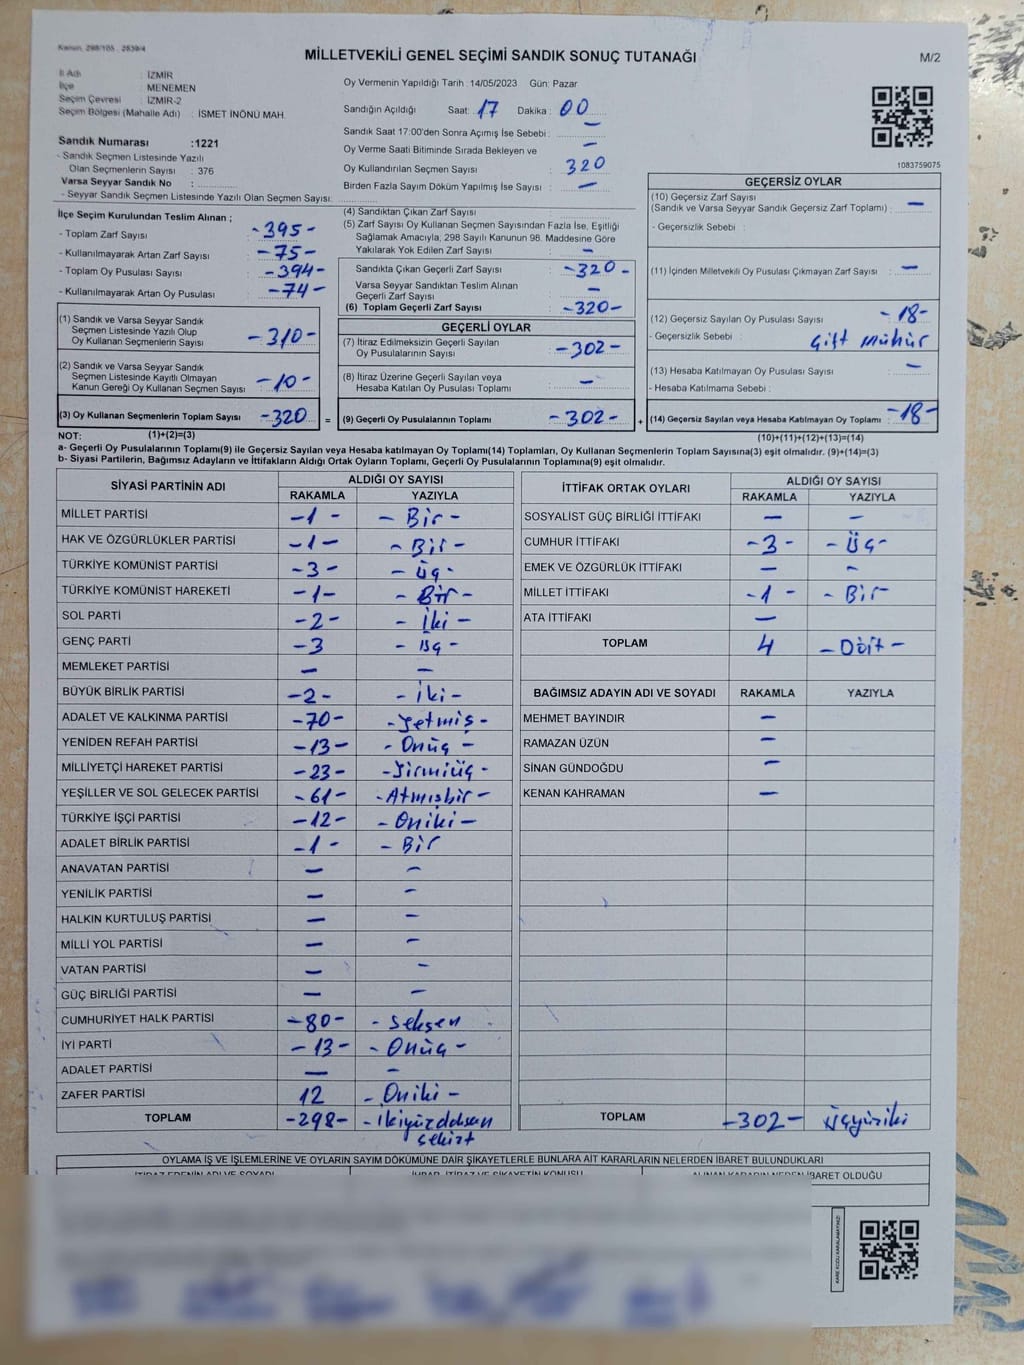 Kanun, 298/105 , 2839/4
MİLLETVEKİLİ GENEL SEÇİMİ SANDIK SONUÇ TUTANAĞI
M/2
İl Adı : İZMİR
İlçe : MENEMEN
Seçim Çevresi : İZMİR-2
Seçim Bölgesi (Mahalle Adı) : İSMET İNÖNÜ MAH.
Sandık Numarası :1221
- Sandık Seçmen Listesinde Yazılı
Olan Seçmenlerin Sayısı : 376
Varsa Seyyar Sandık No :
- Seyyar Sandık Seçmen Listesinde Yazılı Olan Seçmen Sayısı:
Oy Vermenin Yapıldığı Tarih : 14/05/2023 Gün: Pazar
Sandığın Açıldığı Saat: 17 Dakika : 00
Sandık Saat 17:00'den Sonra Açımış İse Sebebi : —
Oy Verme Saati Bitiminde Sırada Bekleyen ve : —
Oy Kullandırılan Seçmen Sayısı : 320
Birden Fazla Sayım Döküm Yapılmış İse Sayısı : —
1083759075
İlçe Seçim Kurulundan Teslim Alınan ;
- Toplam Zarf Sayısı : -395-
- Kullanılmayarak Artan Zarf Sayısı : -75-
- Toplam Oy Pusulası Sayısı : -394-
- Kullanılmayarak Artan Oy Pusulası : -74-
(1) Sandık ve Varsa Seyyar Sandık
Seçmen Listesinde Yazılı Olup
Oy Kullanan Seçmenlerin Sayısı -310-
(2) Sandık ve Varsa Seyyar Sandık
Seçmen Listesinde Kayıtlı Olmayan
Kanun Gereği Oy Kullanan Seçmen Sayısı -10-
(3) Oy Kullanan Seçmenlerin Toplam Sayısı -320 =
(4) Sandıktan Çıkan Zarf Sayısı :
(5) Zarf Sayısı Oy Kullanan Seçmen Sayısından Fazla İse, Eşitliği
Sağlamak Amacıyla, 298 Sayılı Kanunun 98. Maddesine Göre
Yakılarak Yok Edilen Zarf Sayısı : —
Sandıkta Çıkan Geçerli Zarf Sayısı : -320-
Varsa Seyyar Sandıktan Teslim Alınan
Geçerli Zarf Sayısı : —
(6) Toplam Geçerli Zarf Sayısı : -320-
GEÇERLİ OYLAR
(7) İtiraz Edilmeksizin Geçerli Sayılan
Oy Pusulalarının Sayısı : -302-
(8) İtiraz Üzerine Geçerli Sayılan veya
Hesaba Katılan Oy Pusulası Toplamı : —
(9) Geçerli Oy Pusulalarının Toplamı -302- +
GEÇERSİZ OYLAR
(10) Geçersiz Zarf Sayısı
(Sandık ve Varsa Seyyar Sandık Geçersiz Zarf Toplamı) : —
- Geçersizlik Sebebi :
(11) İçinden Milletvekili Oy Pusulası Çıkmayan Zarf Sayısı : —
(12) Geçersiz Sayılan Oy Pusulası Sayısı : -18-
- Geçersizlik Sebebi : Çift Mühür
(13) Hesaba Katılmayan Oy Pusulası Sayısı : —
- Hesaba Katılmama Sebebi :
(14) Geçersiz Sayılan veya Hesaba Katılmayan Oy Toplamı : -18-
NOT: (1)+(2)=(3)
(10)+(11)+(12)+(13)=(14)
a- Geçerli Oy Pusulalarının Toplamı(9) ile Geçersiz Sayılan veya Hesaba katılmayan Oy Toplamı(14) Toplamları, Oy Kullanan Seçmenlerin Toplam Sayısına(3) eşit olmalıdır. (9)+(14)=(3)
b- Siyasi Partilerin, Bağımsız Adayların ve İttifakların Aldığı Ortak Oyların Toplamı, Geçerli Oy Pusulalarının Toplamına(9) eşit olmalıdır.
SİYASİ PARTİNİN ADI ALDIĞI OY SAYISI
RAKAMLA YAZIYLA
MİLLET PARTİSİ -1- - Bir -
HAK VE ÖZGÜRLÜKLER PARTİSİ -1- - Bir -
TÜRKİYE KOMÜNİST PARTİSİ -3- - Üç -
TÜRKİYE KOMÜNİST HAREKETİ -1- - Bir -
SOL PARTİ -2- - İki -
GENÇ PARTİ -3 - Üç -
MEMLEKET PARTİSİ — —
BÜYÜK BİRLİK PARTİSİ -2- - İki -
ADALET VE KALKINMA PARTİSİ -70- - Yetmiş -
YENİDEN REFAH PARTİSİ -13- - Onüç -
MİLLİYETÇİ HAREKET PARTİSİ -23- - Yirmiüç -
YEŞİLLER VE SOL GELECEK PARTİSİ -61- - Atmışbir -
TÜRKİYE İŞÇİ PARTİSİ -12- - Oniki -
ADALET BİRLİK PARTİSİ -1- - Bir
ANAVATAN PARTİSİ — —
YENİLİK PARTİSİ — —
HALKIN KURTULUŞ PARTİSİ — —
MİLLİ YOL PARTİSİ — —
VATAN PARTİSİ — —
GÜÇ BİRLİĞİ PARTİSİ — —
CUMHURİYET HALK PARTİSİ -80- - Seksen
İYİ PARTİ -13- - Onüç -
ADALET PARTİSİ — —
ZAFER PARTİSİ 12 - Oniki -
TOPLAM -298- - İkiyüzdoksan
sekizt
İTTİFAK ORTAK OYLARI ALDIĞI OY SAYISI
RAKAMLA YAZIYLA
SOSYALİST GÜÇ BİRLİĞİ İTTİFAKI — —
CUMHUR İTTİFAKI -3- - Üç -
EMEK VE ÖZGÜRLÜK İTTİFAKI — —
MİLLET İTTİFAKI -1- - Bir -
ATA İTTİFAKI —
TOPLAM 4 - Dört -
BAĞIMSIZ ADAYIN ADI VE SOYADI RAKAMLA YAZIYLA
MEHMET BAYINDIR —
RAMAZAN ÜZÜN —
SİNAN GÜNDOĞDU —
KENAN KAHRAMAN —
TOPLAM -302- Üçyüziki
OYLAMA İŞ VE İŞLEMLERİNE VE OYLARIN SAYIM DÖKÜMÜNE DAİR ŞİKAYETLERLE BUNLARA AİT KARARLARIN NELERDEN İBARET BULUNDUKLARI
İBARET OLDUĞU
KARE KODU KARALAMAYINIZ!